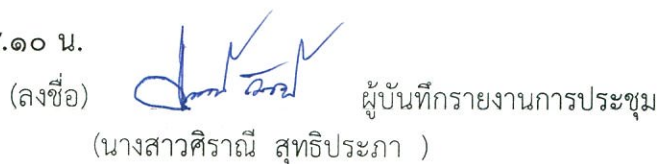 .๑๐ น.
(ลงชื่อ) ผู้บันทึกรายงานการประชุม
(นางสาวศิราณี สุทธิประภา )